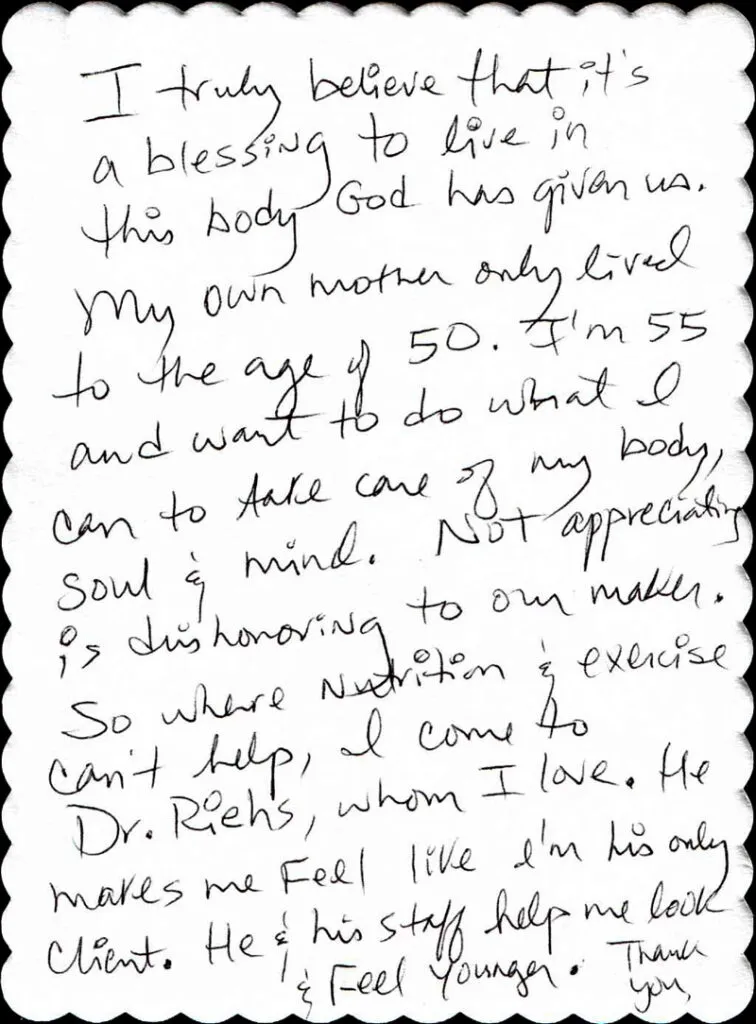 I truly believe that it's
a blessing to live in
this body God has given us.
My own mother only lived
to the age of 50. I'm 55
and want to do what I
can to take care of my body,
soul & mind. Not appreciating
is dishonoring to our maker.
So where Nutrition & exercise
can't help, I come to
Dr. Riehs, whom I love. He
makes me Feel like I'm his only
client. He & his staff help me look
& Feel younger. Thank
you,